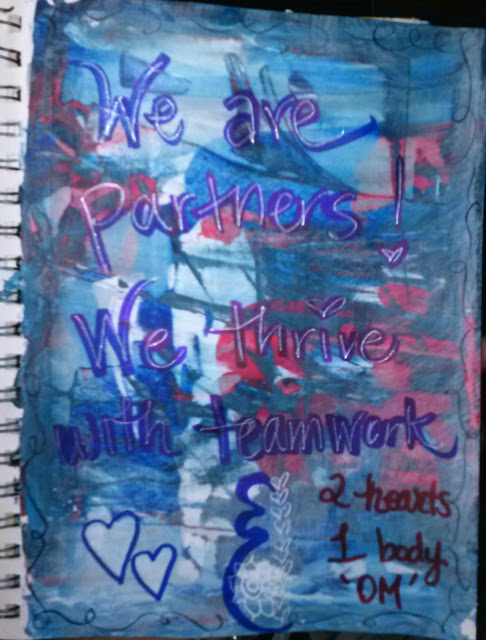 We are
partners!
We thrive
with teamwork
2 hearts
1 body
'OM'